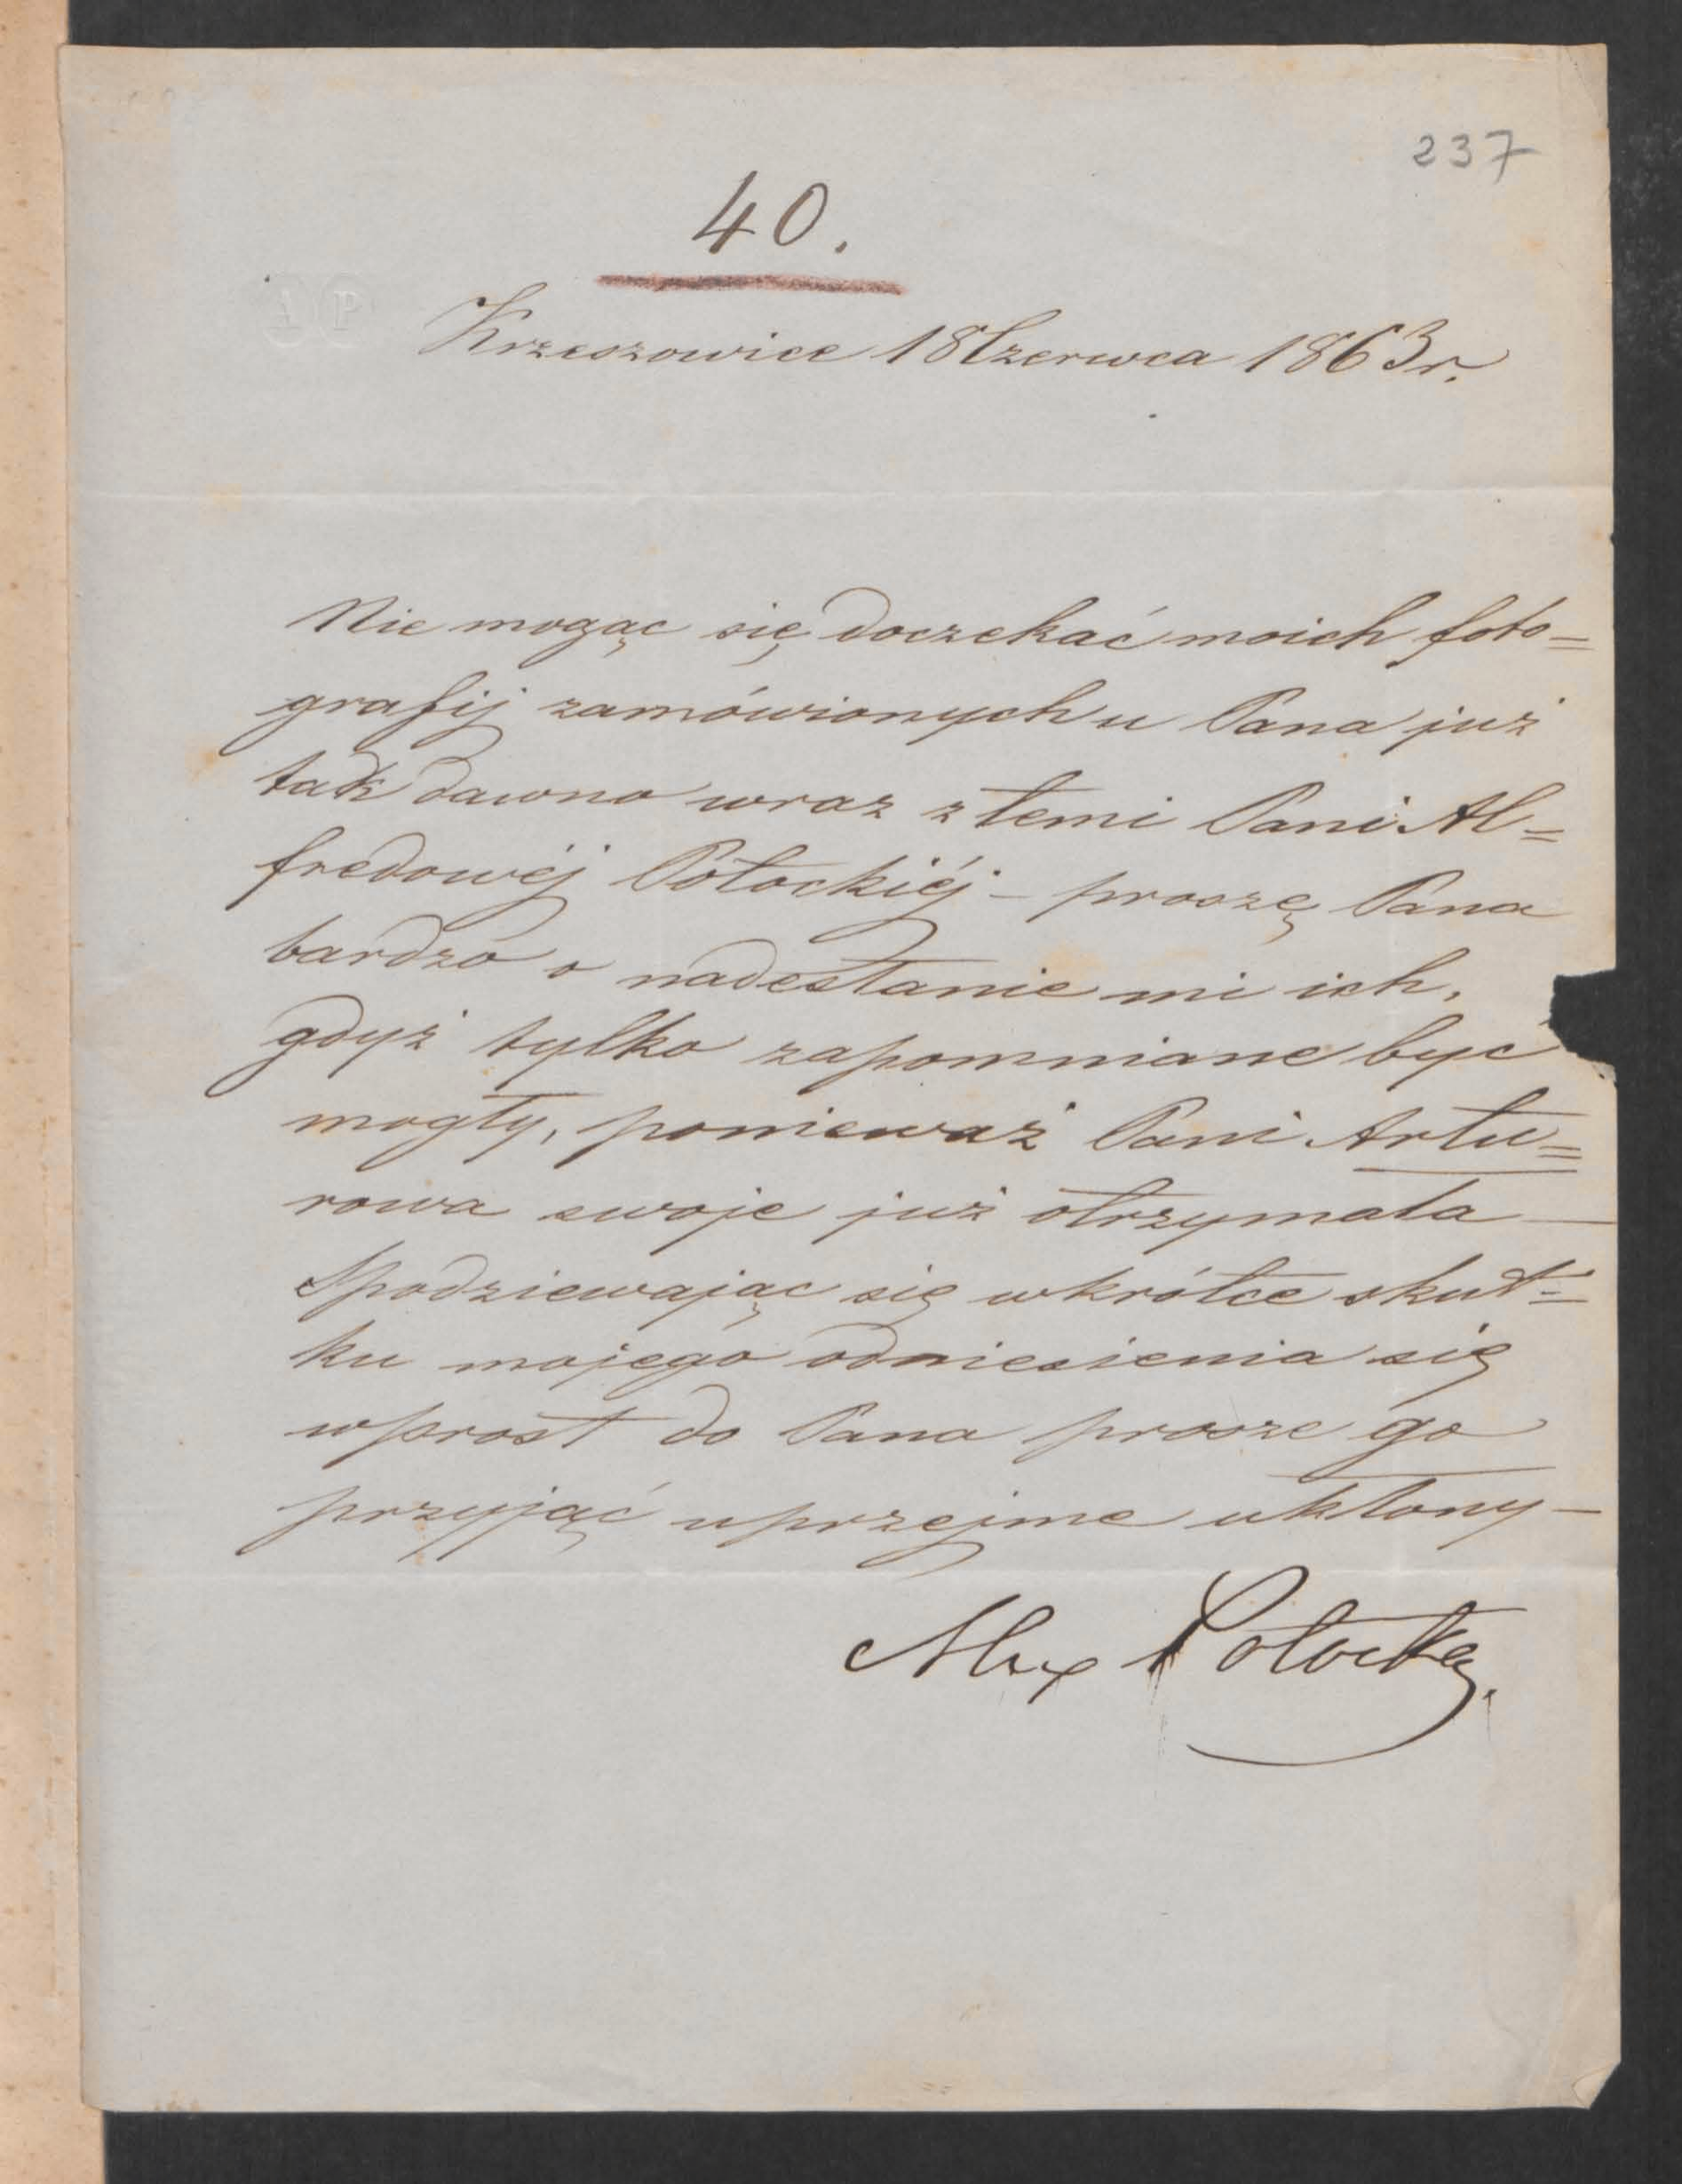 237
40.
AP
Krzeszowice 18 Czerwca 1863 r.
Nie mogąc się doczekać moich foto=
grafij zamówionych u Pana już
tak dawno wraz z temi Pani Al=
fredowéj Potockiéj – proszę Pana
bardzo o nadesłanie mi ich,
gdyż tylko zapomniane być
mogły, ponieważ Pani Artu=
rowa swoje już otrzymała –
Spodziewając się wkrótce skut=
ku mojego odniesienia się
wprost do Pana prosze go
przyjąć uprzejme ukłony –
Alex Potocka.